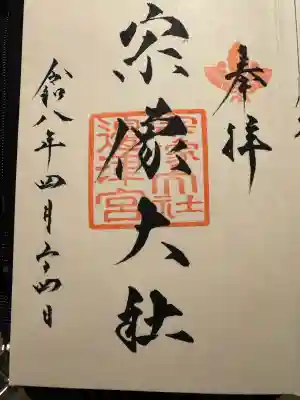 奉拝
宗像大社
宗像大社
邊津宮
令和八年四月二十四日